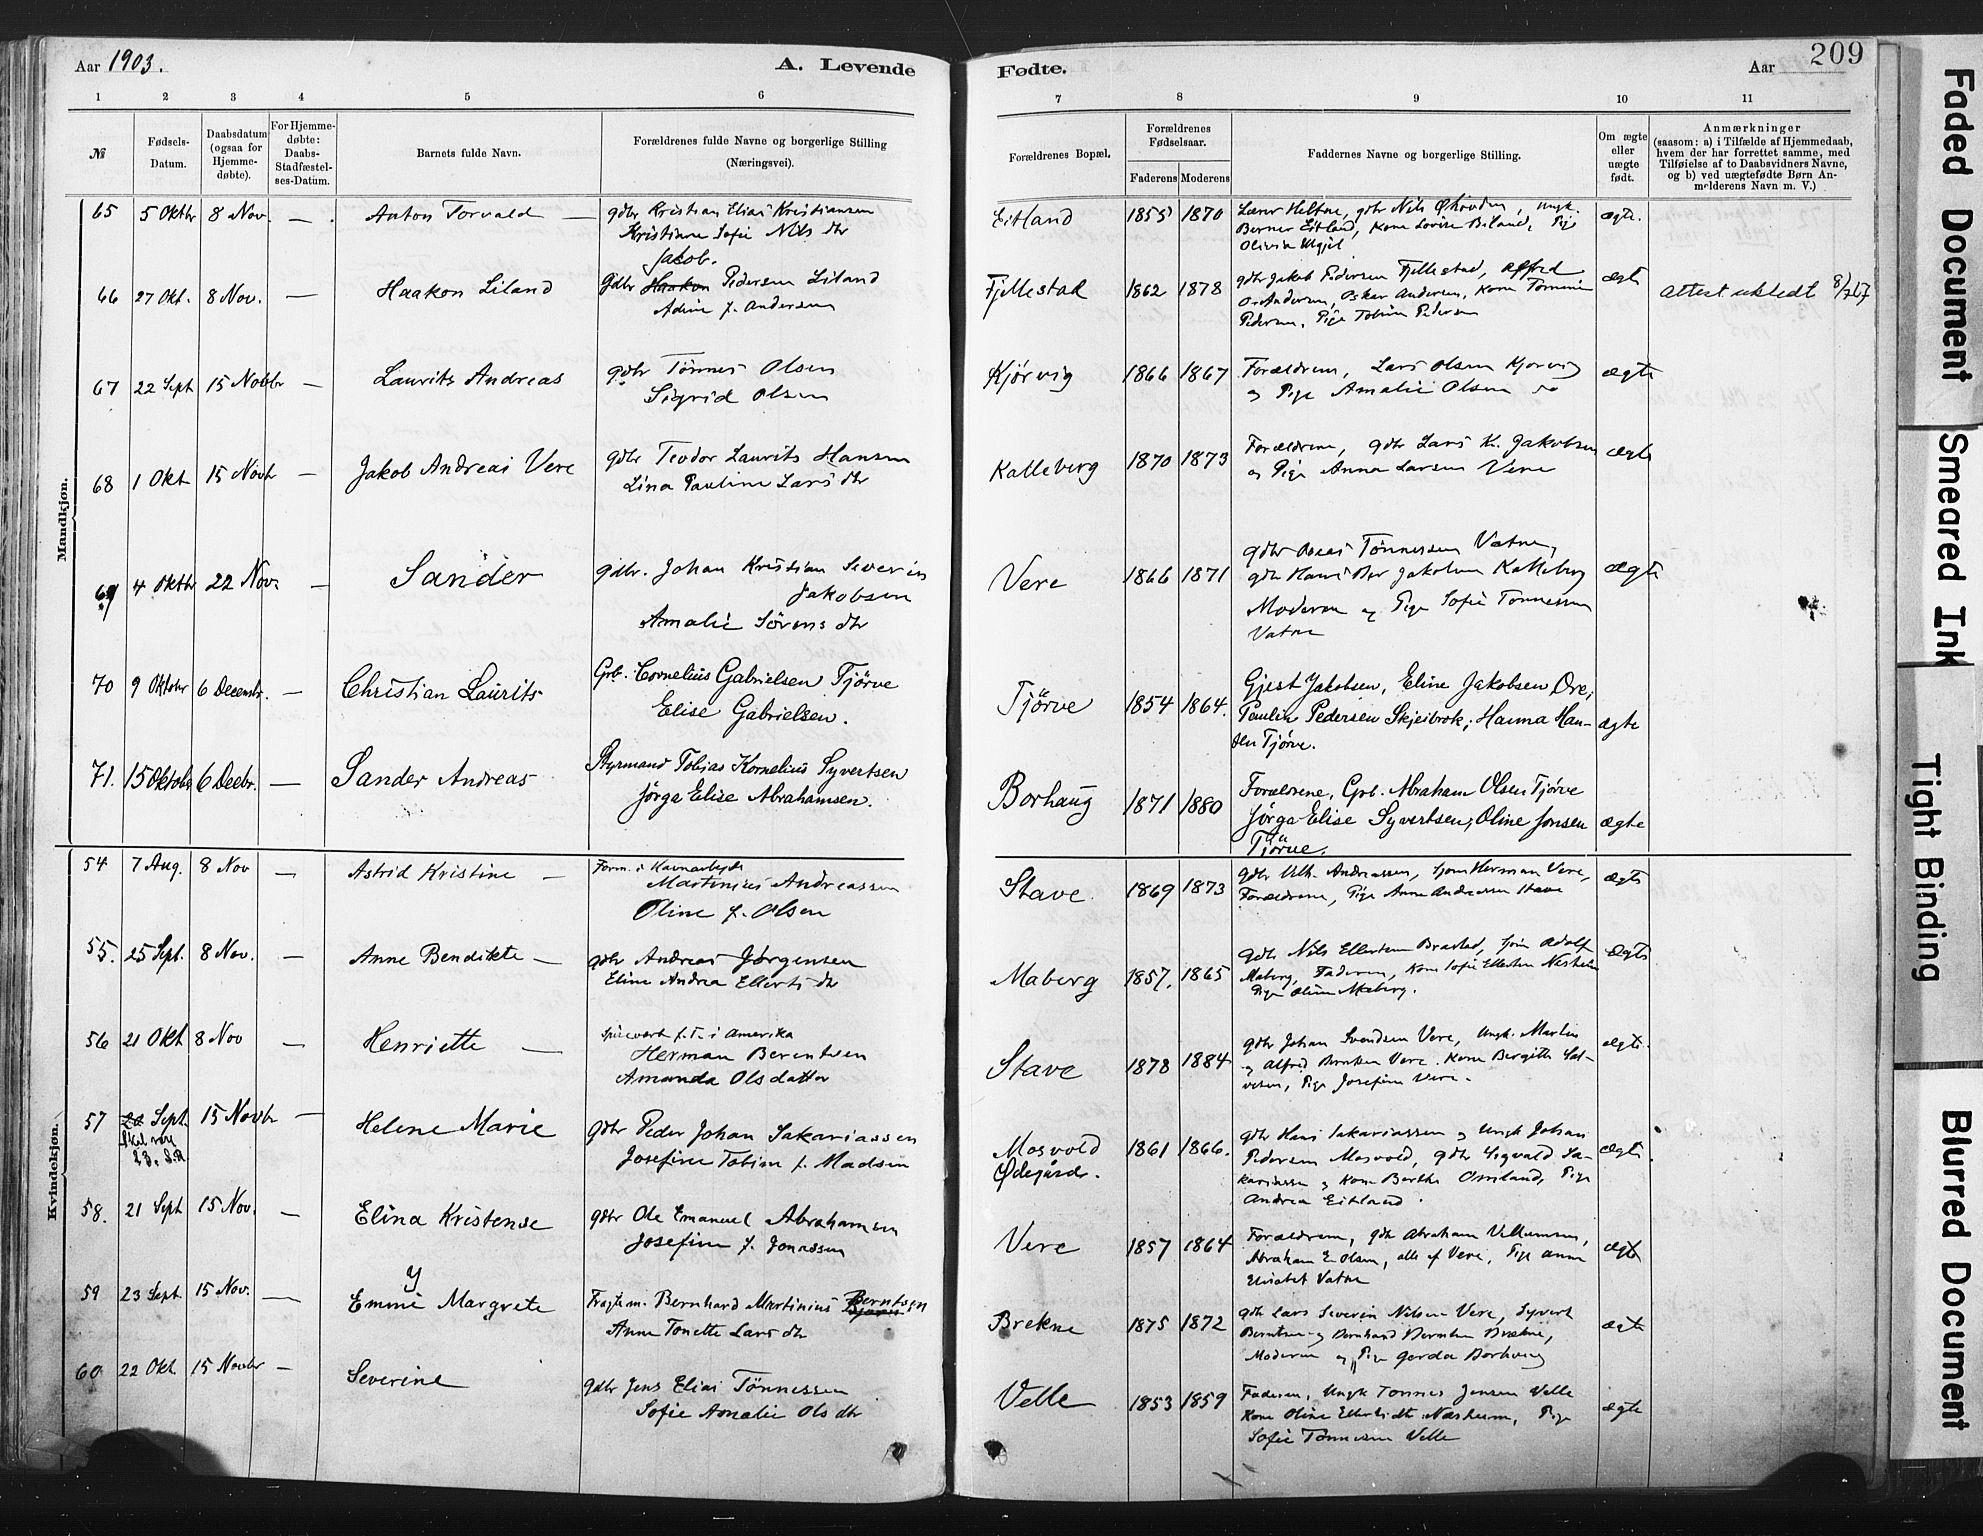 Aar 1903. A. Levende Fødte. Aar 209
1 2 3 4 5 6 7 8 9 10 11
№
Fødsels-Datum.
Daabsdatum (ogsaa for Hjemme-døbte).
For Hjemme-døbte: Daabs-Stadfæstel-ses-Datum.
Barnets fulde Navn.
Forældrenes fulde Navne og borgerlige Stilling (Næringsvei).
Forældrenes Bopæl.
Forældrenes Fødselsaar.
Faderens Moderens
Faddernes Navne og borgerlige Stilling.
Om ægte eller uægte født.
Anmærkninger (saasom: a) i Tilfælde af Hjemmedaab, hvem der har forrettet samme, med Tilføielse af to Daabsvidners Navne, og b) ved uægtefødte Børn Anmelderens Navn m. V.)
Mandkjøn.
65 5 Oktbr 8 Nov. — Anton Torvald — gdbr Kristian Elias Kristiansen Eitland 1855 1870 gdbr Nils ægte.
Kristiane Sofie Nils dtr Berner Eitland, Kone Lovise
Olivia
Jakob.
66 27 Okt. 8 Nov. — Haakon Liland Gdbr Haakon Pedersen Liland Fjellestad 1862 1878 gdbr Jakob Pedersen Fjellestad, Alfred ægte Attest utstedt 8/7 67
Adine f. Andersen Andersen, Oskar Andersen, Kone Tomine
Pedersen, Pige Tobine Pedersen
67 22 Sept 15 Novbr — Laurits Andreas gdbr Tønnes Olsen Kjørvig 1866 1867 Forældrene, Lars Olsen Kjørvig ægte
Sigrid Olsen og Pige Amalie Olsen
68 1 Okt 15 Novbr — Jakob Andreas Vere gdbr Teodor Laurits Hansen Kalleberg 1870 1873 Forældrene, gdbr Lars K. Jakobsen ægte
Lina Pauline Lars dtr og Pige Anna Larsen Vere
69 4 Oktbr 22 Nov. — Sander gdbr. Johan Kristian Severin Vere 1866 1871 gdbr Tønnessen Vatne, ægte
Jakobsen gdbr Jakobsen Kalleberg
Amalie Sørens dtr Moderen og Pige Sofie Tønnessen
Vatne
70 9 Oktobr 6 Decembr. — Christian Laurits Grb. Cornelius Gabrielsen Tjørve Tjørve 1854 1864. Gjest Jakobsen, Eline Jakobsen Ore;
Elise Gabrielsen. Pauline Pedersen Skjeibrok; Hanna Han- ægte
sen Tjørve.
71. 15 Oktobr 6 Decbr. — Sander Andreas Styrmand Tobias Kornelius Syvertsen Borhaug 1871 1880 Forældrene, Grb. Abraham Olsen Tjørve
Jørga Elise Abrahamsen. Jørga Elise Syvertsen; Oline Jonsen ægte
Tjørve.
Kvindekjøn.
54 7 Aug. 8 Nov — Astrid Kristine — Form. i Havnarbejde Stave 1869 1873 gdbr Andreassen, Herman Vere, ægte
Martinius Andreassen Forældrene, Pige Anne Andreassen Stave
Oline f. Olsen
55. 25 Sept. 8 Nov. — Anne Bendikte — gdbr Andreas Jørgensen Maberg 1857. 1865 gdbr Nils Ellertsen Brastad, Adolf ægte
Eline Andrea Ellerts dtr Maberg, Faderen, Kone Sofie Ellertsen
Pige Oline Maberg.
56 21 Okt 8 Nov — Henriette — f. T. i Amerika Stave 1878 1884 gdbr Johan Svendsen Vere, Ungk. Martin ægte
Herman Berentsen og Alfred Berntsen Vere. Kone Bergitte Sal-
Amanda Olsdatter vesen, Pige Josefine Vere.
57 Sept. 15 Novbr — Helene Marie gdbr Peder Johan Sakariassen Mosvold 1861 1866. gdbr Hans Sakariassen og Ungk Johan ægte
Skal være Josefine Tobine f. Madsen Ødegård. Pedersen Mosvold, gdbr Sigvald Sa-
23. S.R kariassen og Kone Berthe Omland, Pige
Andrea Eitland.
58. 21 Sept 15 Nov. — Elina Kristense gdbr Ole Emanuel Abrahamsen Vere 1857 1864 Forældrene, gdbr Abraham ægte
Josefine f. Jonassen Abraham E. Olsen, alle af Vere, Pige Anne
Elisabet Vatne
59 23 Sept 15 Nov. — Emmi y Margrete Fragtem. Bernhard Martinius Berntsen Brekne 1875 1872 gdbr Lars Severin Nilsen Vere, Syvert ægte
Anne Tonette Lars dtr Berntsen og Bernhard Berntsen Brekne,
Moderen og Pige Gerda Borhaug
60 22 Okt 15 Novbr — Severine gdbr Jens Elias Tønnessen Velle 1853 1859 Faderen, Ungk Tønnes Jensen Velle ægte
Sofie Amalie Ols dtr Kone Oline Næsheim, Pige
Sofie Tønnessen Velle
Faded Document
Smeared Ink
Tight Binding
Blurred Document